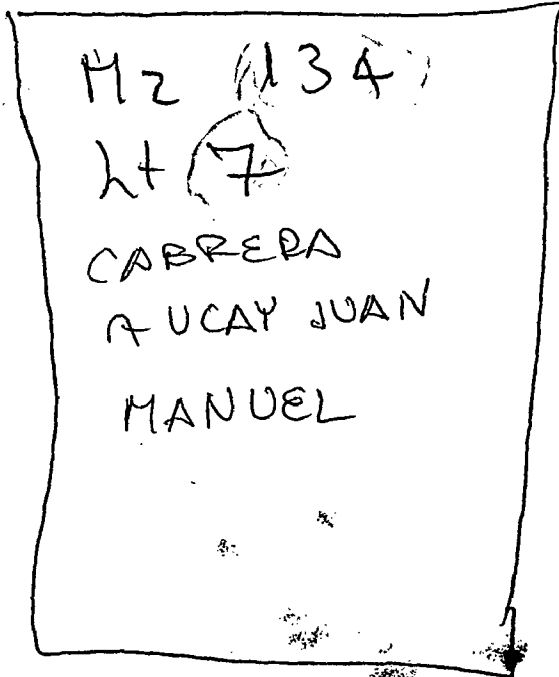 Mz 134
Lt 7
CABRERA
AUCAY JUAN
MANUEL